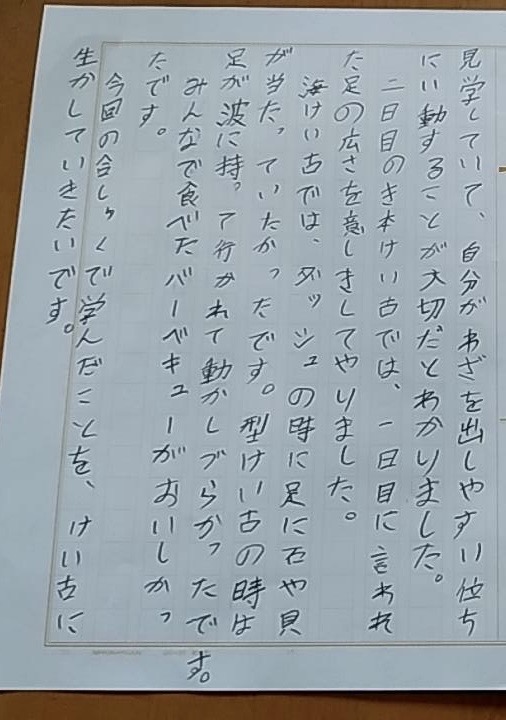 見学していて、自分がわざを出しやすい位ち
にい動することが大切だとわかりました。
二日目のき本けい古では、一日目に言われ
た足の広さを意しきしてやりました。
海けい古では、ダッシュの時に足に石や貝
が当たっていたかったです。型けい古の時は
足が波に持って行かれて動かしづらかったです。
みんなで食べたバーベキューがおいしかっ
たです。
今回の合しゅくで学んだことを、けい古に
生かしていきたいです。